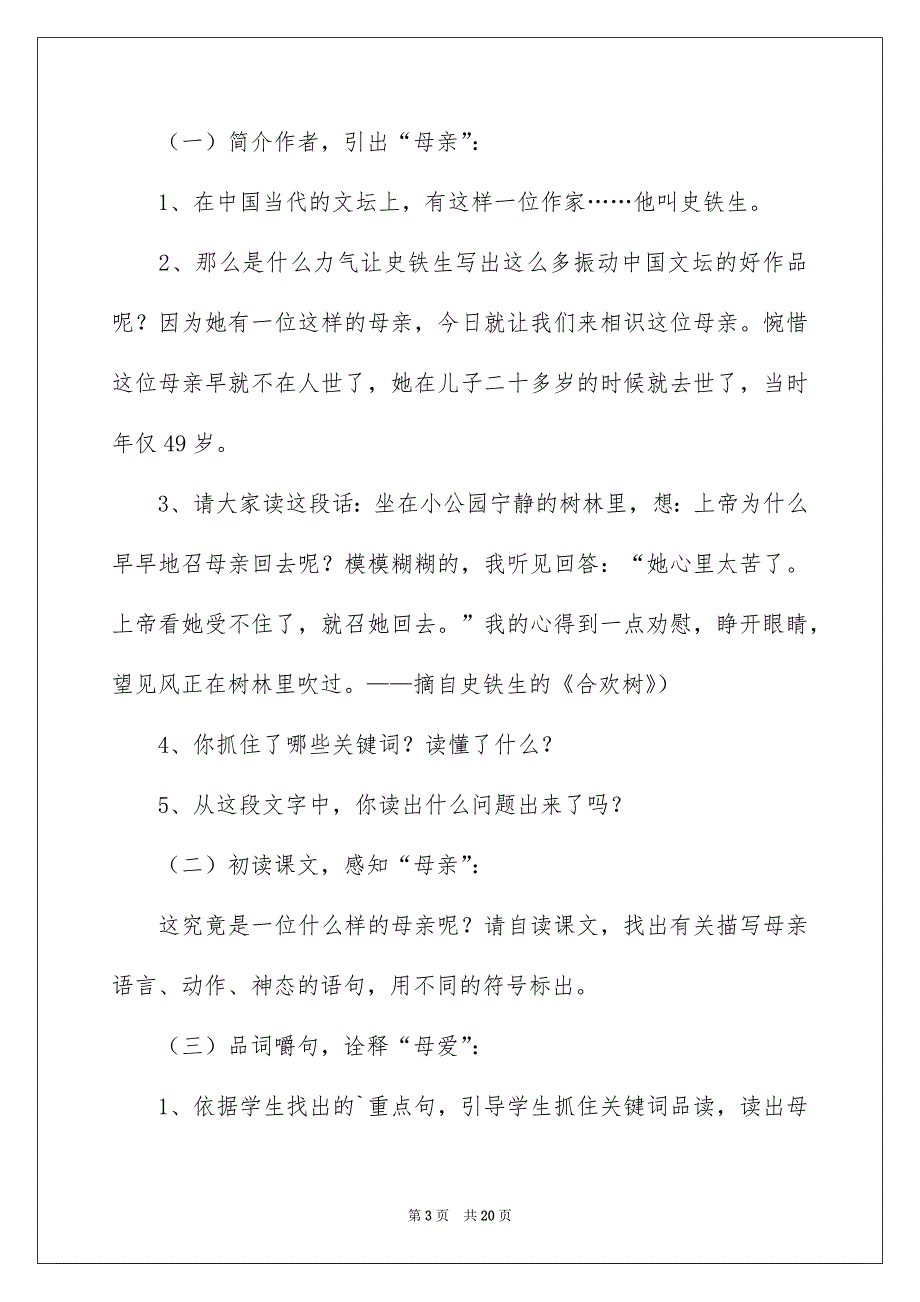 （一）简介作者，引出“母亲”：
1、在中国当代的文坛上，有这样一位作家……他叫史铁生。
2、那么是什么力气让史铁生写出这么多振动中国文坛的好作品
呢？因为她有一位这样的母亲，今日就让我们来相识这位母亲。惋惜
这位母亲早就不在人世了，她在儿子二十多岁的时候就去世了，当时
年仅 49 岁。
3、请大家读这段话：坐在小公园宁静的树林里，想：上帝为什么
早早地召母亲回去呢？模模糊糊的，我听见回答：“她心里太苦了。
上帝看她受不住了，就召她回去。”我的心得到一点劝慰，睁开眼睛，
望见风正在树林里吹过。——摘自史铁生的《合欢树》）
4、你抓住了哪些关键词？读懂了什么？
5、从这段文字中，你读出什么问题出来了吗？
（二）初读课文，感知“母亲”：
这究竟是一位什么样的母亲呢？请自读课文，找出有关描写母亲
语言、动作、神态的语句，用不同的符号标出。
（三）品词嚼句，诠释“母爱”：
1、依据学生找出的`重点句，引导学生抓住关键词品读，读出母
第 3 页 共 20 页